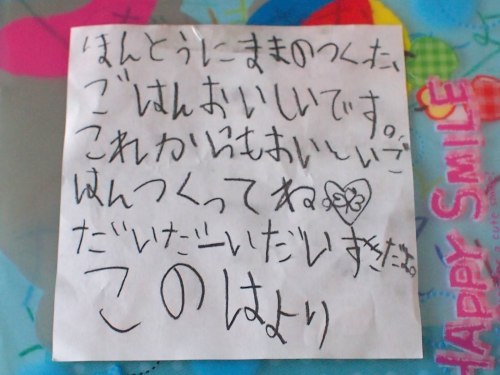 ほんとうにままのつくた、
ごはんおいしいです。
これからもおいしいご
はんつくってね
だいだーいだいすきだよ。
このはより
HAPPY SMILE